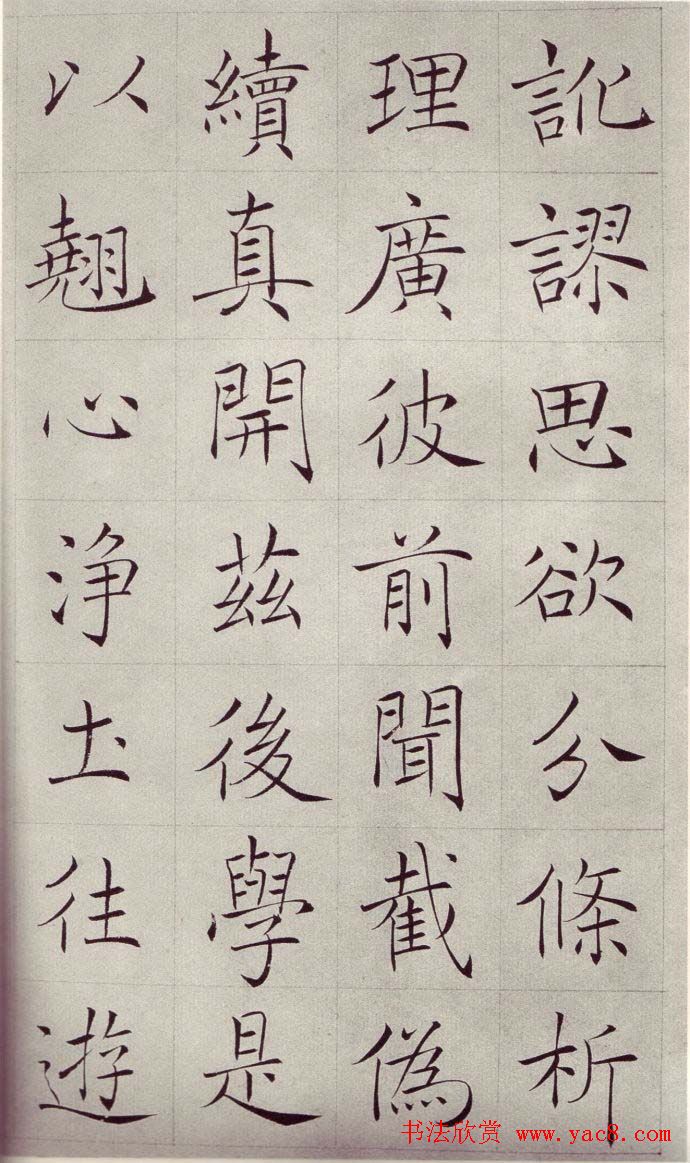 訛謬思欲分條析
理廣彼前聞截偽
續真開茲後學是
以翹心淨土往遊
书法欣赏 www.yac8.com